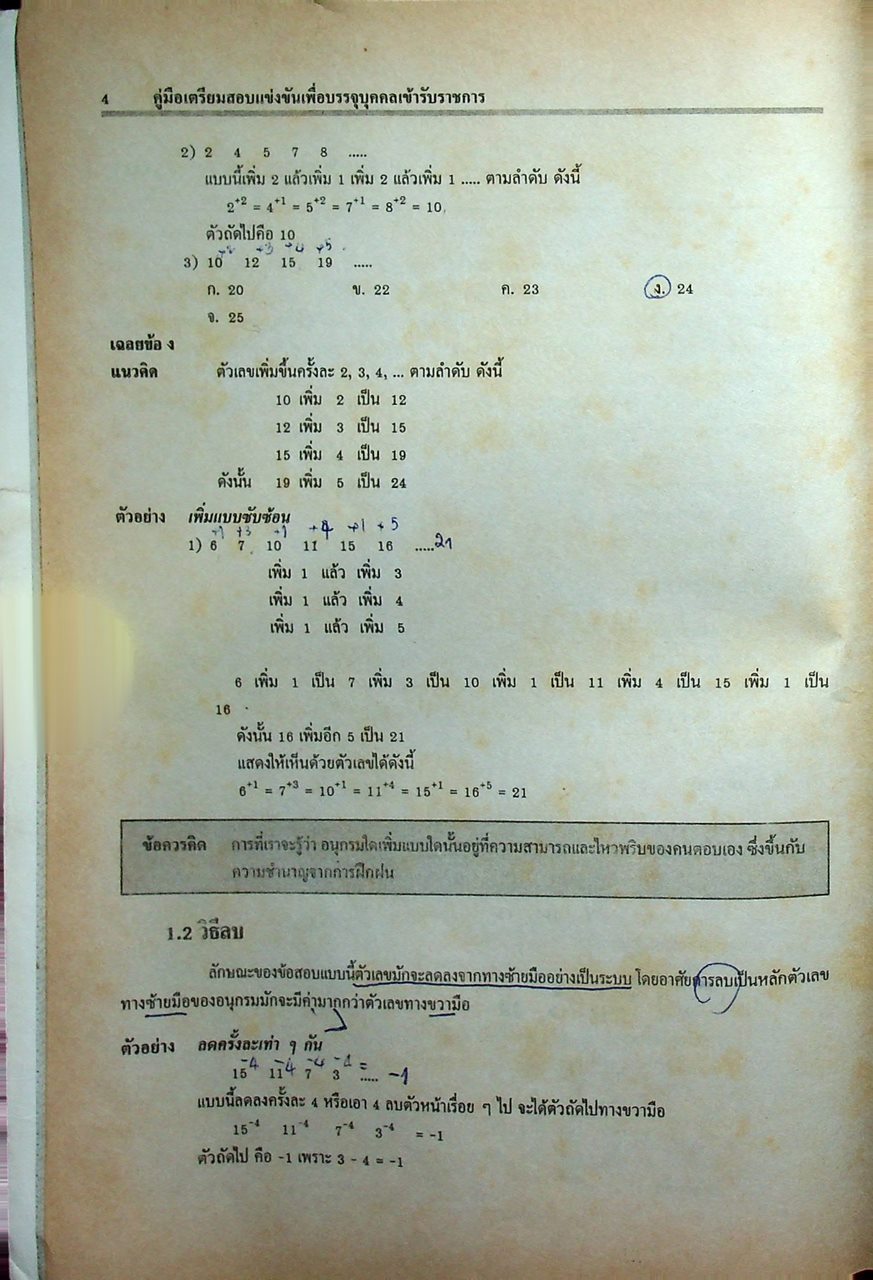 4 คู่มือเตรียมสอบแข่งขันเพื่อบรรจุบุคคลเข้ารับราชการ
2) 2 4 5 7 8 .....
แบบนี้เพิ่ม 2 แล้วเพิ่ม 1 เพิ่ม 2 แล้วเพิ่ม 1 ..... ตามลำดับ ดังนี้
2⁺² = 4⁺¹ = 5⁺² = 7⁺¹ = 8⁺² = 10
ตัวถัดไปคือ 10
+2 +3 +4 +5
3) 10 12 15 19 .....
ก. 20 ข. 22 ค. 23 ง. 24
จ. 25
เฉลยข้อ ง
แนวคิด ตัวเลขเพิ่มขึ้นครั้งละ 2, 3, 4, ... ตามลำดับ ดังนี้
10 เพิ่ม 2 เป็น 12
12 เพิ่ม 3 เป็น 15
15 เพิ่ม 4 เป็น 19
ดังนั้น 19 เพิ่ม 5 เป็น 24
ตัวอย่าง เพิ่มแบบซับซ้อน
+1 +3 +1 +4 +1 +5
1) 6 7 10 11 15 16 ..... 21
เพิ่ม 1 แล้ว เพิ่ม 3
เพิ่ม 1 แล้ว เพิ่ม 4
เพิ่ม 1 แล้ว เพิ่ม 5
6 เพิ่ม 1 เป็น 7 เพิ่ม 3 เป็น 10 เพิ่ม 1 เป็น 11 เพิ่ม 4 เป็น 15 เพิ่ม 1 เป็น
16
ดังนั้น 16 เพิ่มอีก 5 เป็น 21
แสดงให้เห็นด้วยตัวเลขได้ดังนี้
6⁺¹ = 7⁺³ = 10⁺¹ = 11⁺⁴ = 15⁺¹ = 16⁺⁵ = 21
ข้อควรคิด การที่เราจะรู้ว่า อนุกรมใดเพิ่มแบบใดนั้นอยู่ที่ความสามารถและไหวพริบของคนตอบเอง ซึ่งขึ้นกับ
ความชำนาญจากการฝึกฝน
1.2 วิธีลบ
ลักษณะของข้อสอบแบบนี้ตัวเลขมักจะลดลงจากทางซ้ายมืออย่างเป็นระบบ โดยอาศัยการลบเป็นหลักตัวเลข
ทางซ้ายมือของอนุกรมมักจะมีค่ามากกว่าตัวเลขทางขวามือ
ตัวอย่าง ลดครั้งละเท่า ๆ กัน
-4 -4 -4 -4 =
15 11 7 3 ..... -1
แบบนี้ลดลงครั้งละ 4 หรือเอา 4 ลบตัวหน้าเรื่อย ๆ ไป จะได้ตัวถัดไปทางขวามือ
15⁻⁴ 11⁻⁴ 7⁻⁴ 3⁻⁴ = -1
ตัวถัดไป คือ -1 เพราะ 3 - 4 = -1